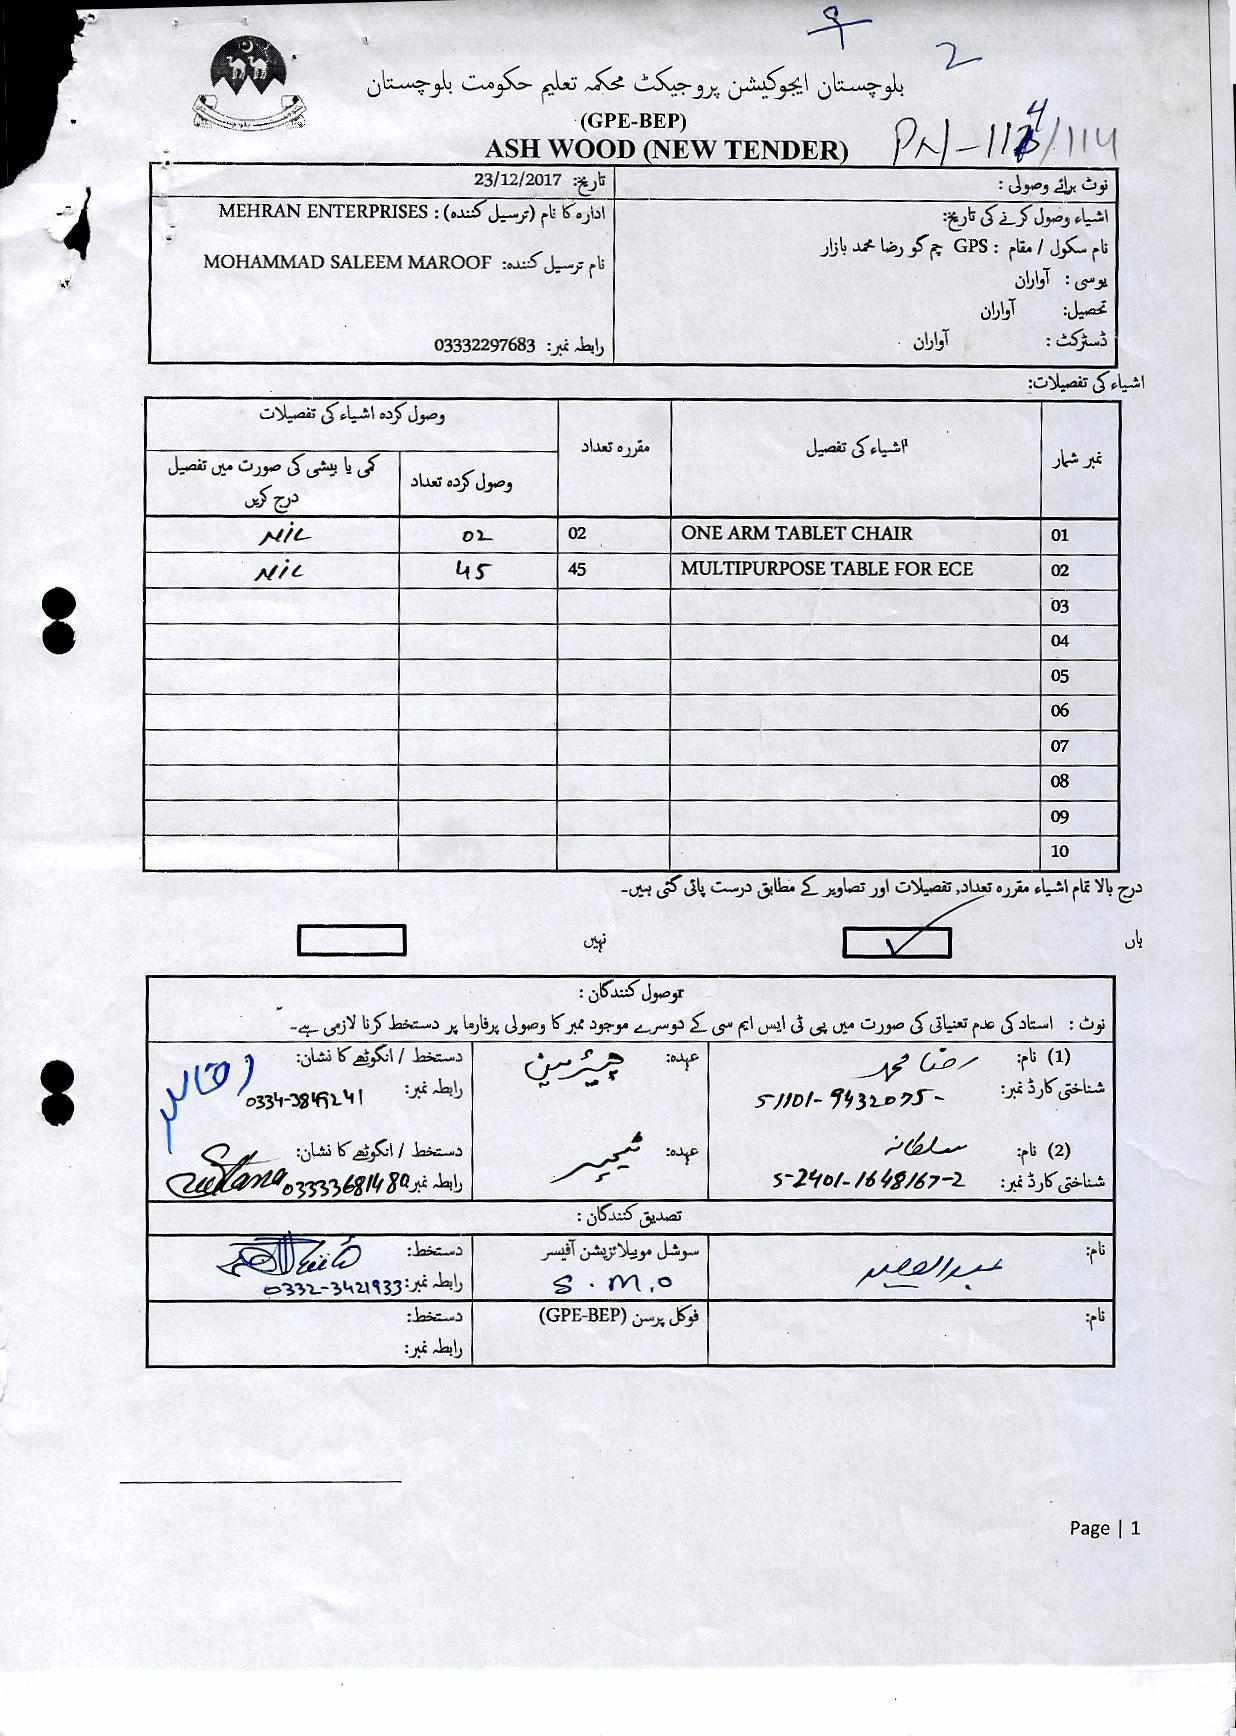 2
بلوچستان ایجوکیشن پروجیکٹ محکمہ تعلیم حکومت بلوچستان
(GPE-BEP)
ASH WOOD (NEW TENDER)
PN-114/114
نوٹ برائے وصولی :
تاریخ: 23/12/2017
اشیاء وصول کرنے کی تاریخ:
نام سکول / مقام : GPS چم گو رضا محمد بازار
یوسی : آواران
تحصیل: آواران
ڈسٹرکٹ : آواران
ادارہ کا نام (ترسیل کنندہ) : MEHRAN ENTERPRISES
نام ترسیل کنندہ: MOHAMMAD SALEEM MAROOF
رابطہ نمبر: 03332297683
اشیاء کی تفصیلات:
نمبر شمار اشیاء کی تفصیل مقررہ تعداد وصول کردہ اشیاء کی تفصیلات
وصول کردہ تعداد کمی یا بیشی کی صورت میں تفصیل درج کریں
01 ONE ARM TABLET CHAIR 02 02 NIL
02 MULTIPURPOSE TABLE FOR ECE 45 45 NIL
03
04
05
06
07
08
09
10
درج بالا تمام اشیاء مقررہ تعداد, تفصیلات اور تصاویر کے مطابق درست پائی گئی ہیں۔
ہاں ✓ نہیں
توصول کنندگان :
نوٹ : استاد کی عدم تعنیاتی کی صورت میں پی ٹی ایس ایم سی کے دوسرے موجود ممبر کا وصولی پرفارما پر دستخط کرنا لازمی ہے۔
(1) نام: رضا محمد عہدہ: چیئرمین دستخط / انگوٹھے کا نشان:
شناختی کارڈ نمبر: 51101-9432075- رابطہ نمبر: 0334-3849241
(2) نام: سلطانہ عہدہ: ٹیچر دستخط / انگوٹھے کا نشان: Sultana
شناختی کارڈ نمبر: 5-2401-1648167-2 رابطہ نمبر: 03333681480
تصدیق کنندگان :
نام: سوشل موبیلائزیشن آفیسر دستخط:
S.M.O رابطہ نمبر: 0332-3421933
نام: فوکل پرسن (GPE-BEP) دستخط:
رابطہ نمبر:
Page | 1